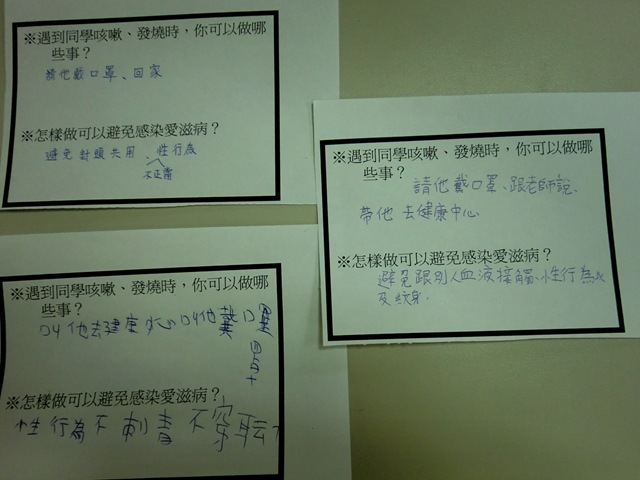 ※遇到同學咳嗽、發燒時，你可以做哪
些事？
請他戴口罩、回家
※怎樣做可以避免感染愛滋病？
避免針頭共用、性行為
不正當
※遇到同學咳嗽、發燒時，你可以做哪
些事？
請他戴口罩、跟老師說、
帶他去健康中心
※怎樣做可以避免感染愛滋病？
避免跟別人血液接觸、性行為以
及紋身.
※遇到同學咳嗽、發燒時，你可以做哪
些事？
叫他去健康中心叫他戴口罩
※怎樣做可以避免感染愛滋病？
性行為不刺青不穿耳